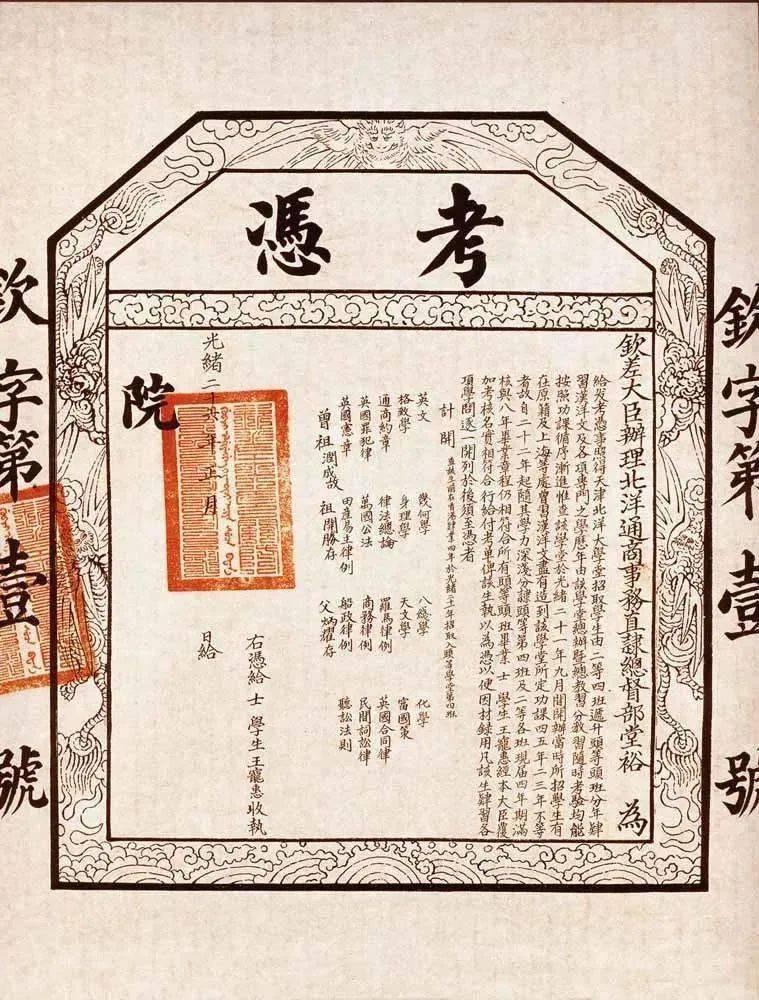 考憑
欽字第壹號
欽差大臣辦理北洋通商事務直隸總督部堂裕 為
給發考憑事照得天津北洋大學堂招取學生由二等四班遞升頭等頭班分年肄
習漢洋文及各項專門之學歷年由該學堂總辦暨總教習分教習隨時考驗均能
按照功課循序漸進惟查該學堂於光緒二十一年九月間開辦當時所招學生有
在原籍及上海等處曾習漢洋文盡有造到該學堂所定功課四五年二三年不等
者故自二十二年起隨其學力深淺分隸頭等第四班及二等各班現屆四年期滿
核與八年畢業章程仍相符合所有頭等頭班畢業士 學生王寵惠經本大臣覆
加考核名實相符合行給付考單俾該生執以為憑以便因材錄用凡該生肄習各
項學問逐一開列於後須至憑者
計開
肄業四年於光緒二十一年招取入頭等學堂第四班
英文 幾何學 八線學 化學
格致學 身理學 天文學 富國策
通商約章 律法總論 羅馬律例 英國合同律
英國罪犯律 萬國公法 商務律例 民間詞訟律
英國憲章 田產易主律例 船政律例 聽訟法則
曾祖潤成故 祖開勝存 父炳耀存
右憑給 士 學生王寵惠收執
光緒二十六年正月 日給
院
欽字第壹號